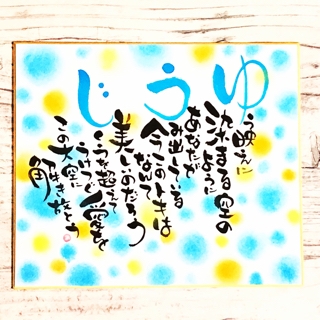 ゆうじ
う映えに
染まる空の
ように
あなたが
み出している
今このときは
なんて
美しいのだろう
くうを超えて
うけつぐ愛を
この大空に
解き放とう